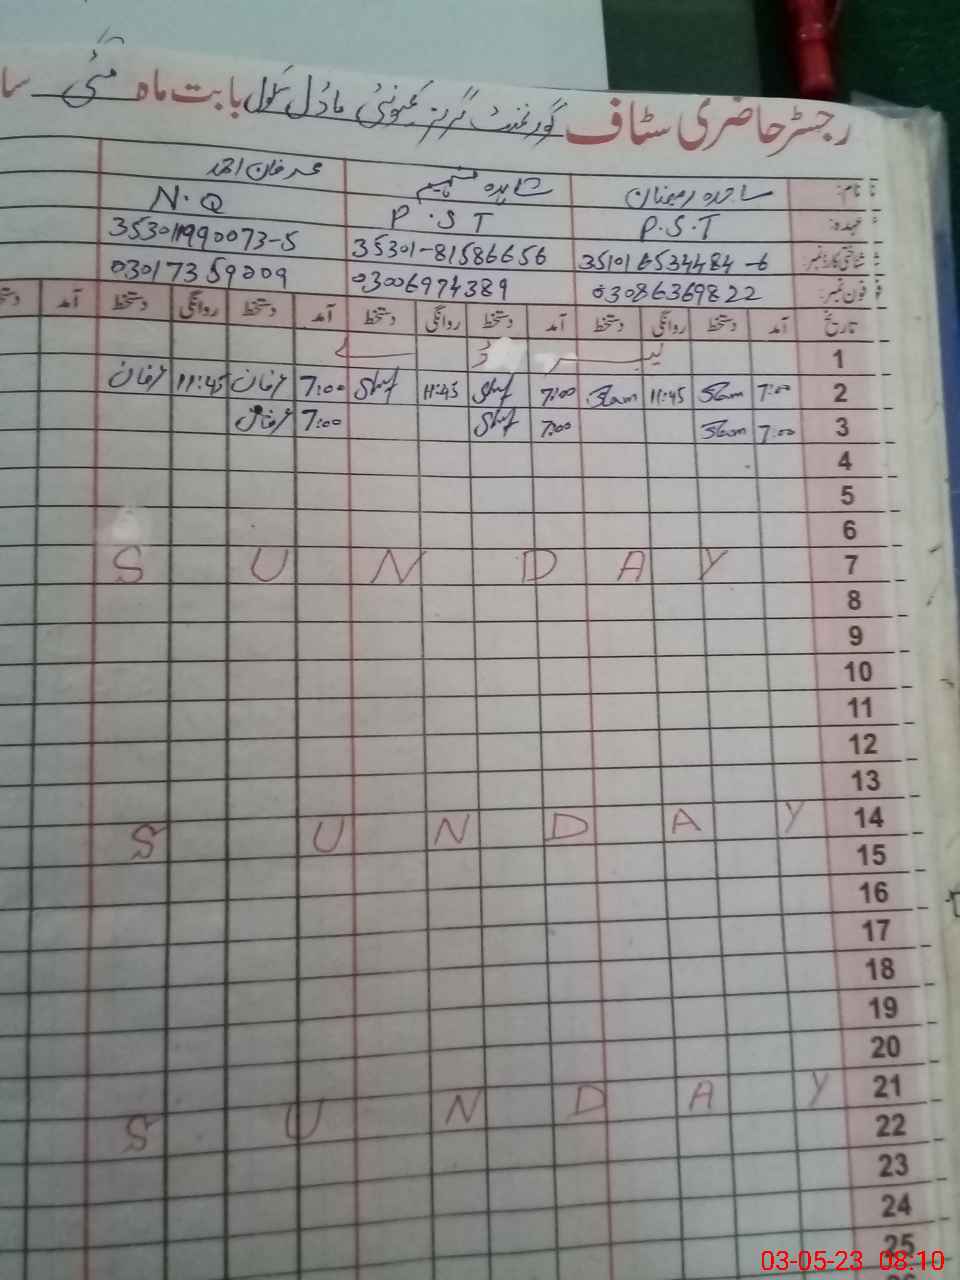 رجسٹر حاضری سٹاف گورنمنٹ گرلز کمیونٹی ماڈل سکول بابت ماہ مئی سا
نام: ساجدہ رمضان شاہدہ نسیم عرفان احمد
عہدہ: P.S.T P.S.T N.Q
شناختی کارڈ نمبر: 351016534484-6 35301-81586656 353011990073-5
فون نمبر: 03086369822 03006974389 03017359009
تاریخ آمد دستخط روانگی دستخط آمد دستخط روانگی دستخط آمد دستخط روانگی دستخط آمد
1 لیبر ڈے
2 7:00 11:45 7:00 11:45 7:00 عرفان 11:45 عرفان
3 7:00 7:00 7:00 عرفان
4
5
6
7 SUNDAY
8
9
10
11
12
13
14 SUNDAY
15
16
17
18
19
20
21 SUNDAY
22
23
24
25
03-05-23 08:10